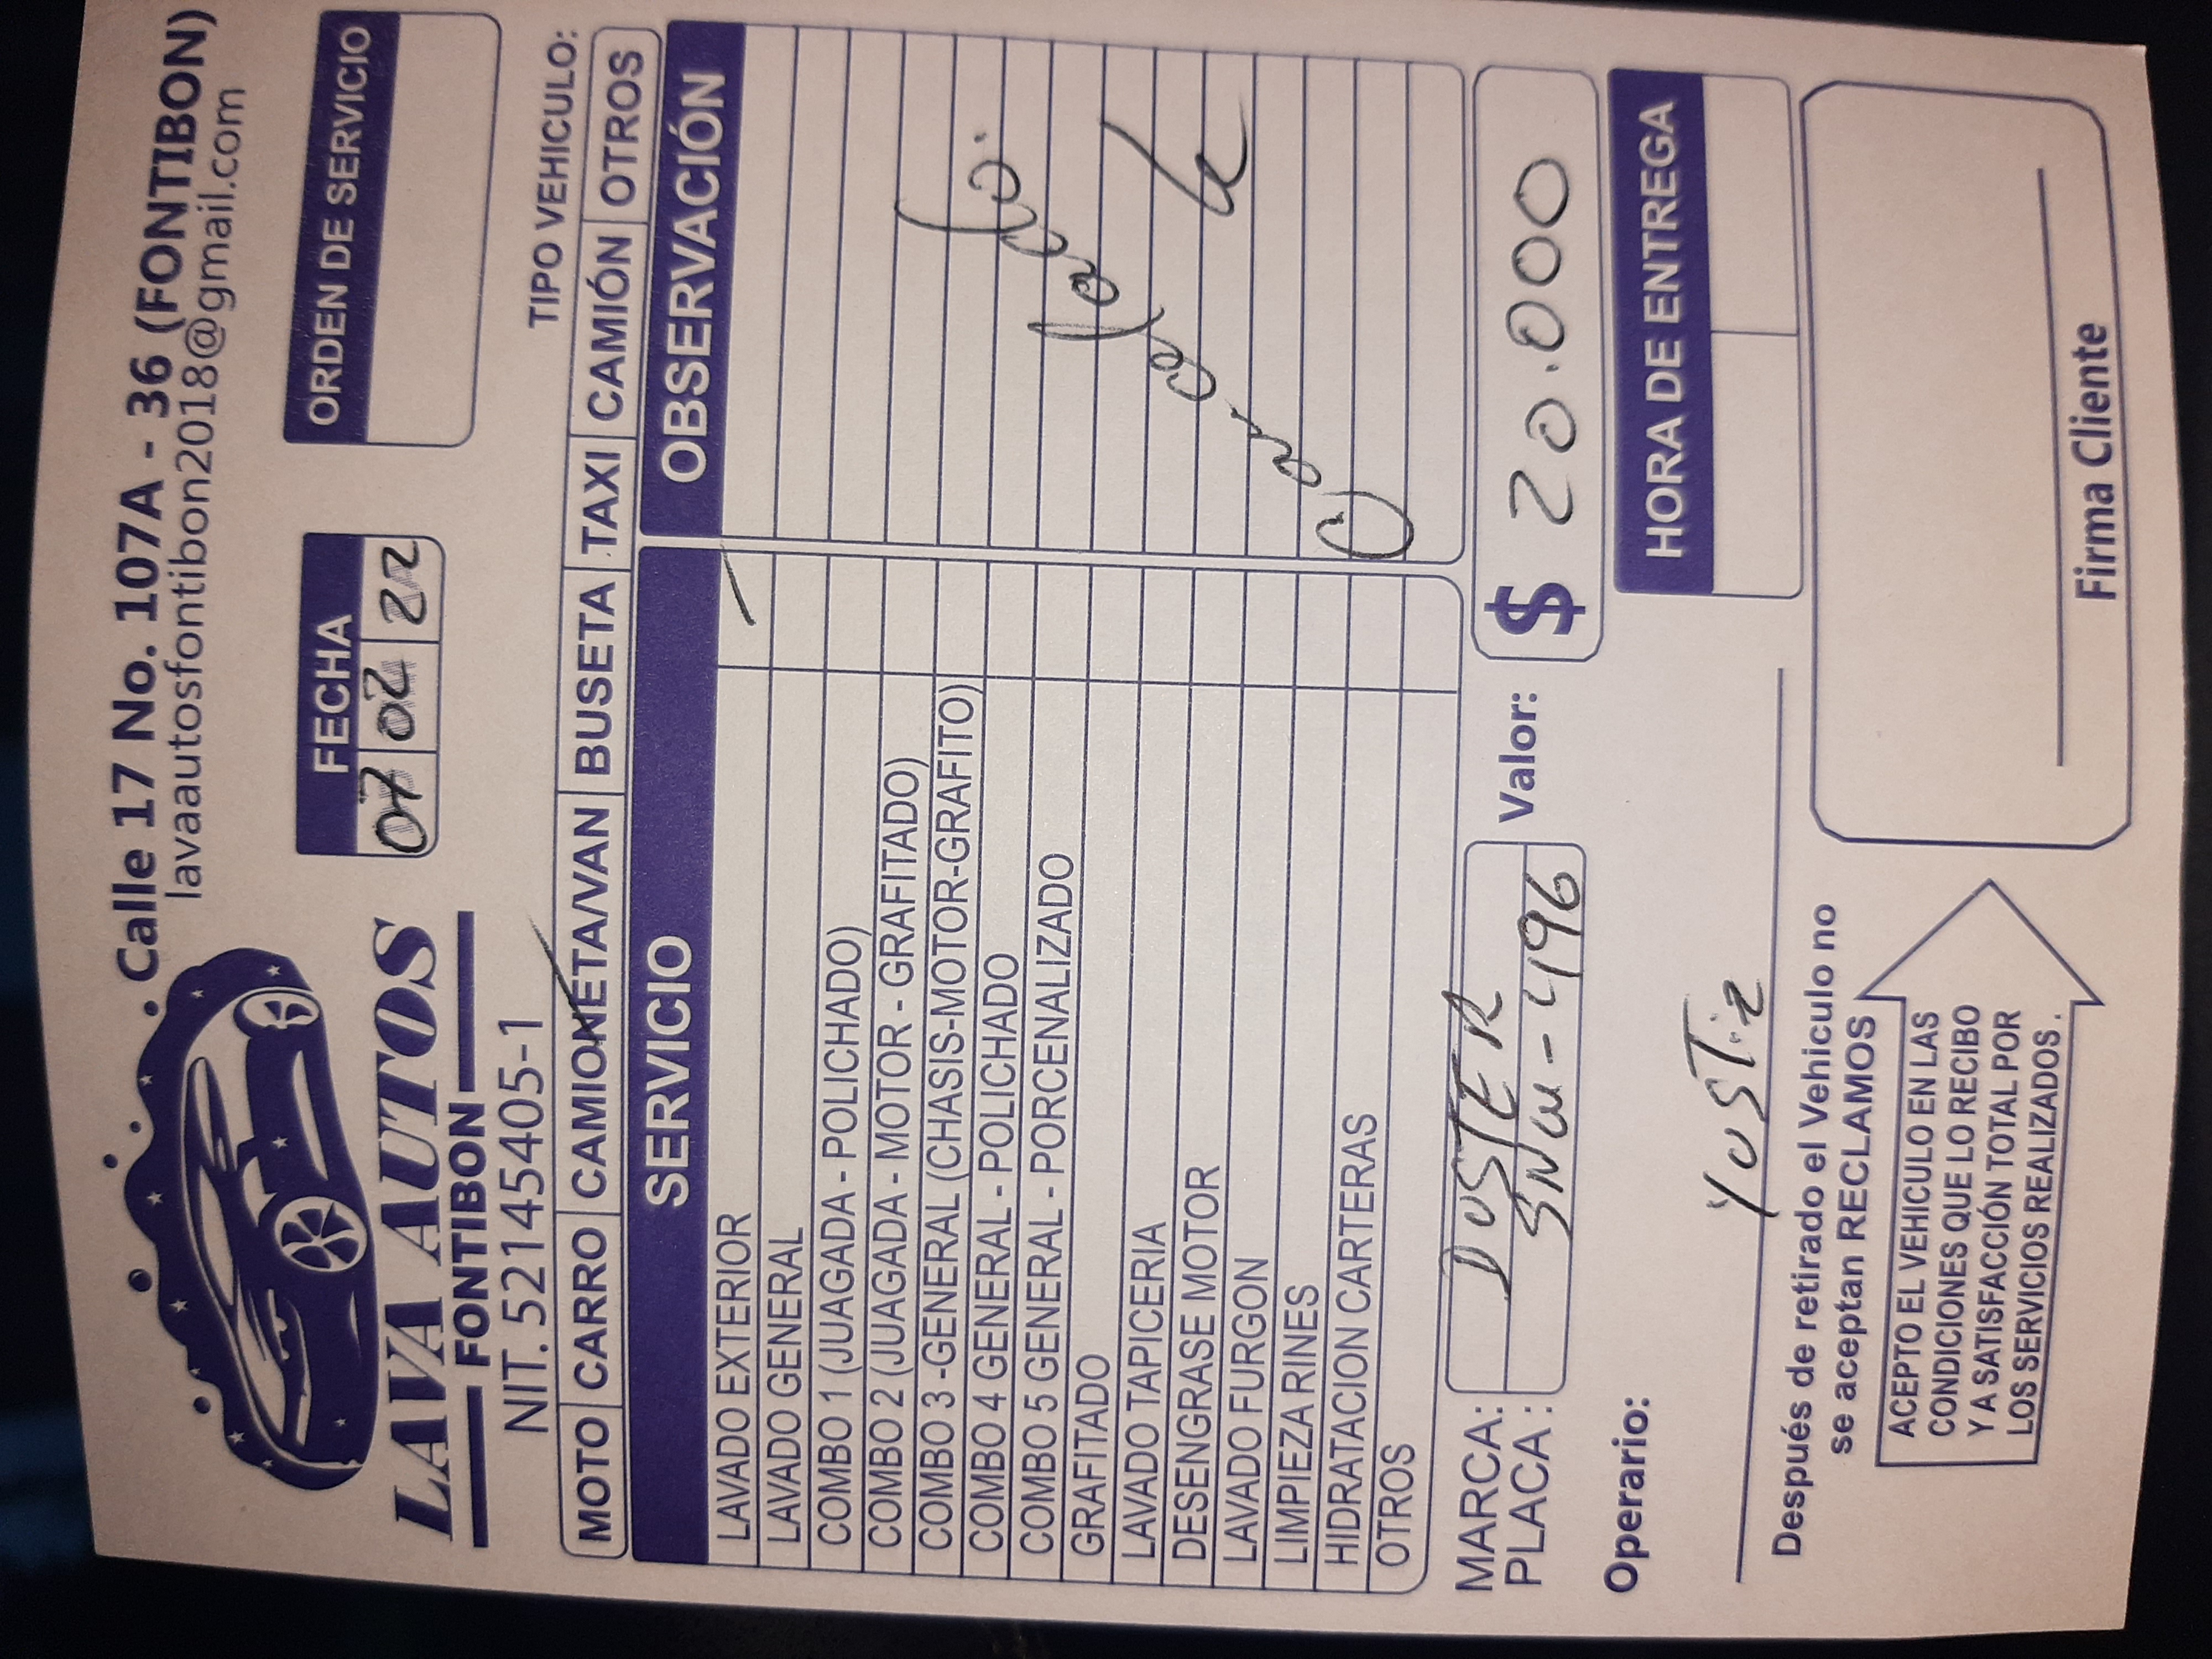 Calle 17 No. 107A - 36 (FONTIBON)
lavaautosfontibon2018@gmail.com
LAVA AUTOS
FONTIBON
NIT. 52145405-1
FECHA
07 02 22
ORDEN DE SERVICIO
TIPO VEHICULO:
MOTO CARRO CAMIONETA/VAN BUSETA TAXI CAMIÓN OTROS
SERVICIO OBSERVACIÓN
LAVADO EXTERIOR
LAVADO GENERAL
COMBO 1 (JUAGADA - POLICHADO)
COMBO 2 (JUAGADA - MOTOR - GRAFITADO)
COMBO 3 -GENERAL (CHASIS-MOTOR-GRAFITO)
COMBO 4 GENERAL - POLICHADO
COMBO 5 GENERAL - PORCENALIZADO
GRAFITADO
LAVADO TAPICERIA
DESENGRASE MOTOR
LAVADO FURGON
LIMPIEZA RINES
HIDRATACION CARTERAS
OTROS
MARCA: DUSTER
PLACA: SNW-496
Valor: $ 20.000
Operario:
YUSTiz
HORA DE ENTREGA
Después de retirado el Vehiculo no
se aceptan RECLAMOS
ACEPTO EL VEHICULO EN LAS
CONDICIONES QUE LO RECIBO
Y A SATISFACCIÓN TOTAL POR
LOS SERVICIOS REALIZADOS.
Firma Cliente